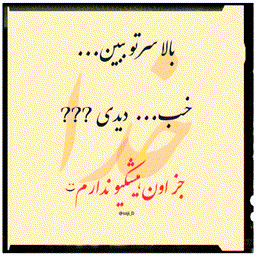 بالا سرتو ببین...
خدا
خب... دیدی ???
جز اون هیشکیو ندارم